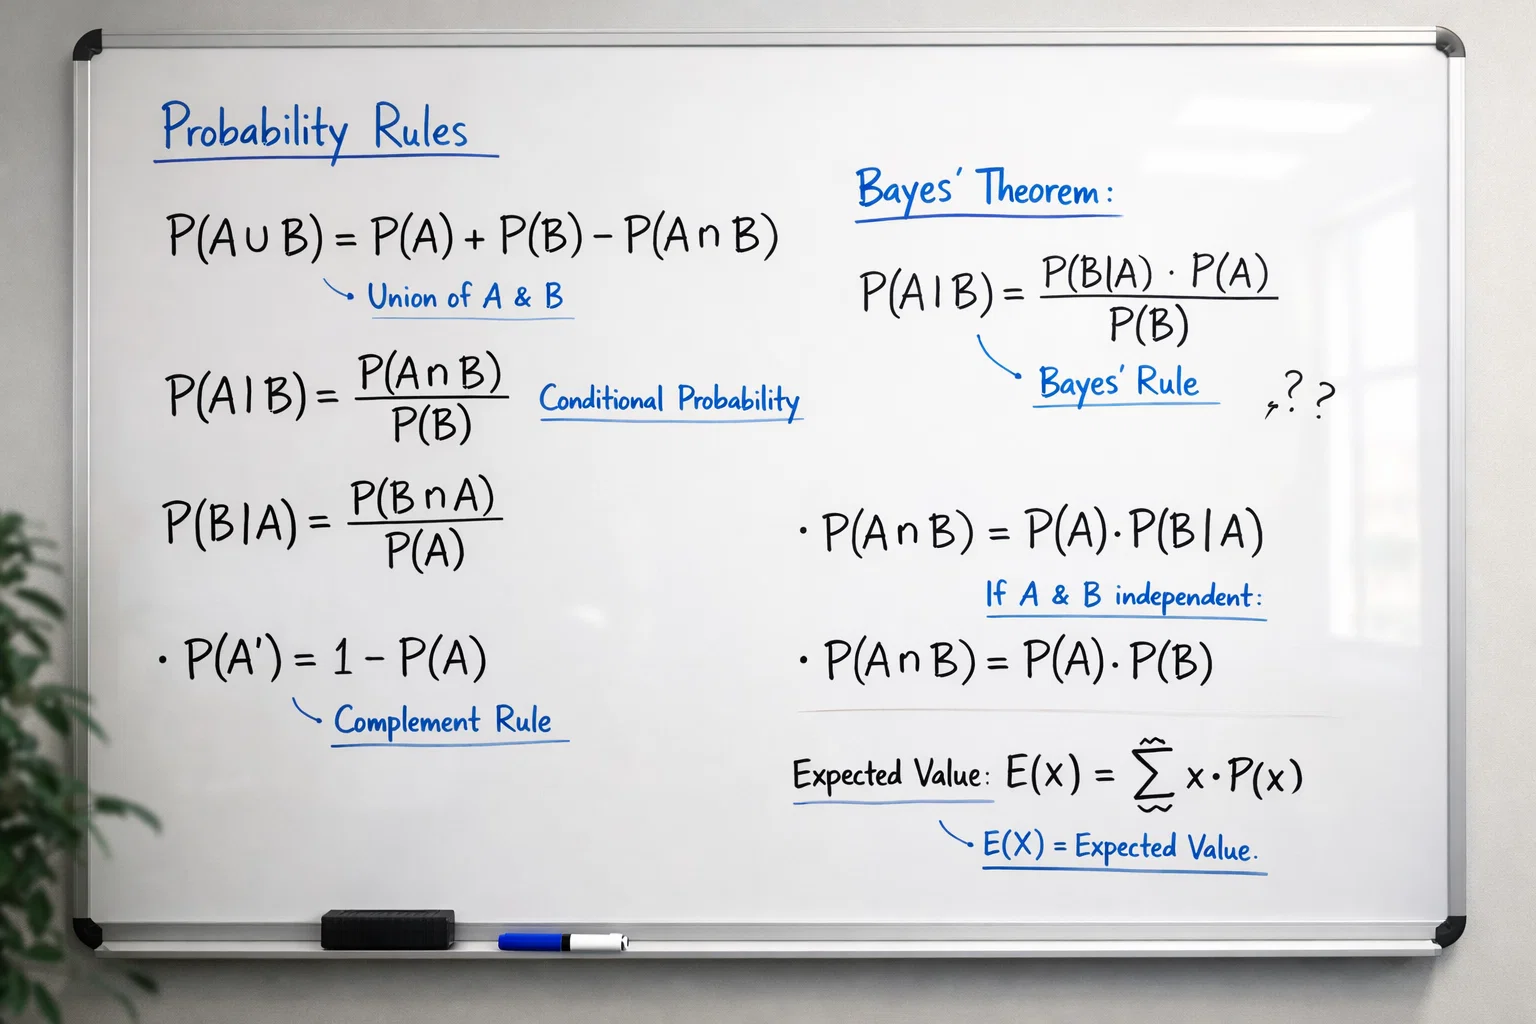 Probability Rules
P(A ∪ B) = P(A) + P(B) – P(A ∩ B)
Union of A & B
P(A | B) = P(A ∩ B) / P(B)
Conditional Probability
P(B | A) = P(B ∩ A) / P(A)
· P(A') = 1 – P(A)
Complement Rule
Bayes' Theorem:
P(A | B) = P(B|A) · P(A) / P(B)
Bayes' Rule
??
· P(A ∩ B) = P(A) · P(B | A)
If A & B independent:
· P(A ∩ B) = P(A) · P(B)
Expected Value: E(x) = ∑ x · P(x)
E(X) = Expected Value.